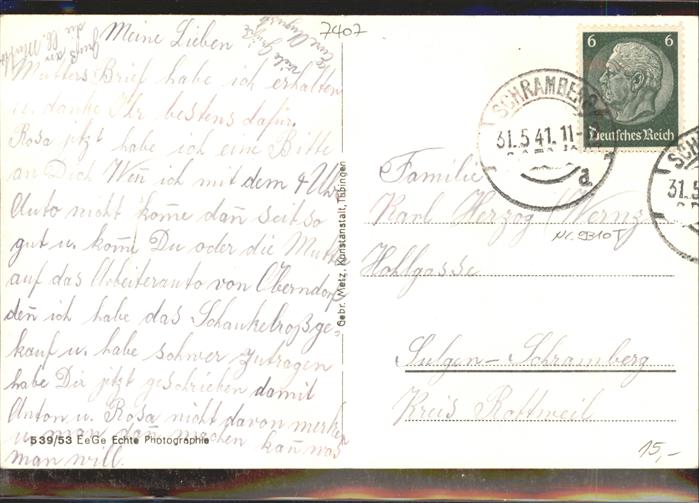 Meine Lieben
Mutters Brief habe ich erhalten
u. danke Ihr bestens dafür.
Rosa jetzt habe ich eine Bitte
an Dich Weñ ich mit dem 4 Uhr
Auto nicht kom̄e dañ seit so
gut u. kom̄ Du oder die Mutter
auf das Arbeiterauto von Oberndorf
deñ ich habe das Schaukelroß ge-
kauf u. habe schwer zutragen
habe Dir jetzt geschrieben damit
Anton u. Rosa nicht davon merken
u. man dañ machen kañ was
man will.
Gruß an
die Mutter
viele Grüße
August
7407
539/53 EeGe Echte Photographie
Gebr. Metz, Kunstanstalt, Tübingen
6 6
Deutsches Reich
SCHRAMBERG
31.5.41.11-
a
SCH
31.5
Familie
Karl Herzog Wernz
Nr. 9310T
Hohlgasse
Sulgen-Schramberg
Kreis Rottweil
15,-